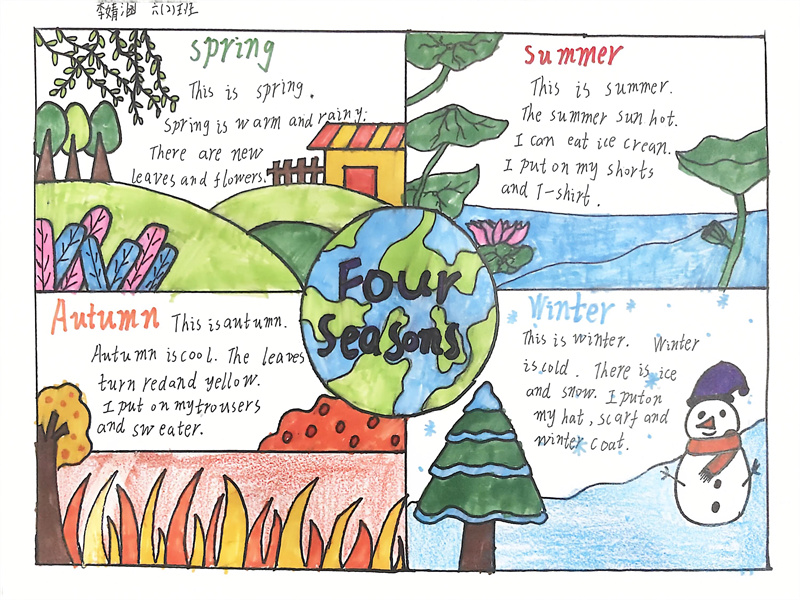 李婧涵 六(2)班
spring
This is spring.
Spring is warm and rainy.
There are new
leaves and flowers.
Summer
This is summer.
The summer sun hot.
I can eat ice crean.
I put on my shorts
and T-shirt.
Four
Seasons
Autumn
This is autumn.
Autumn is cool. The leaves
turn red and yellow.
I put on my trousers
and sweater.
Winter
This is winter. Winter
is cold. There is ice
and snow. I put on
my hat, scarf and
winter coat.